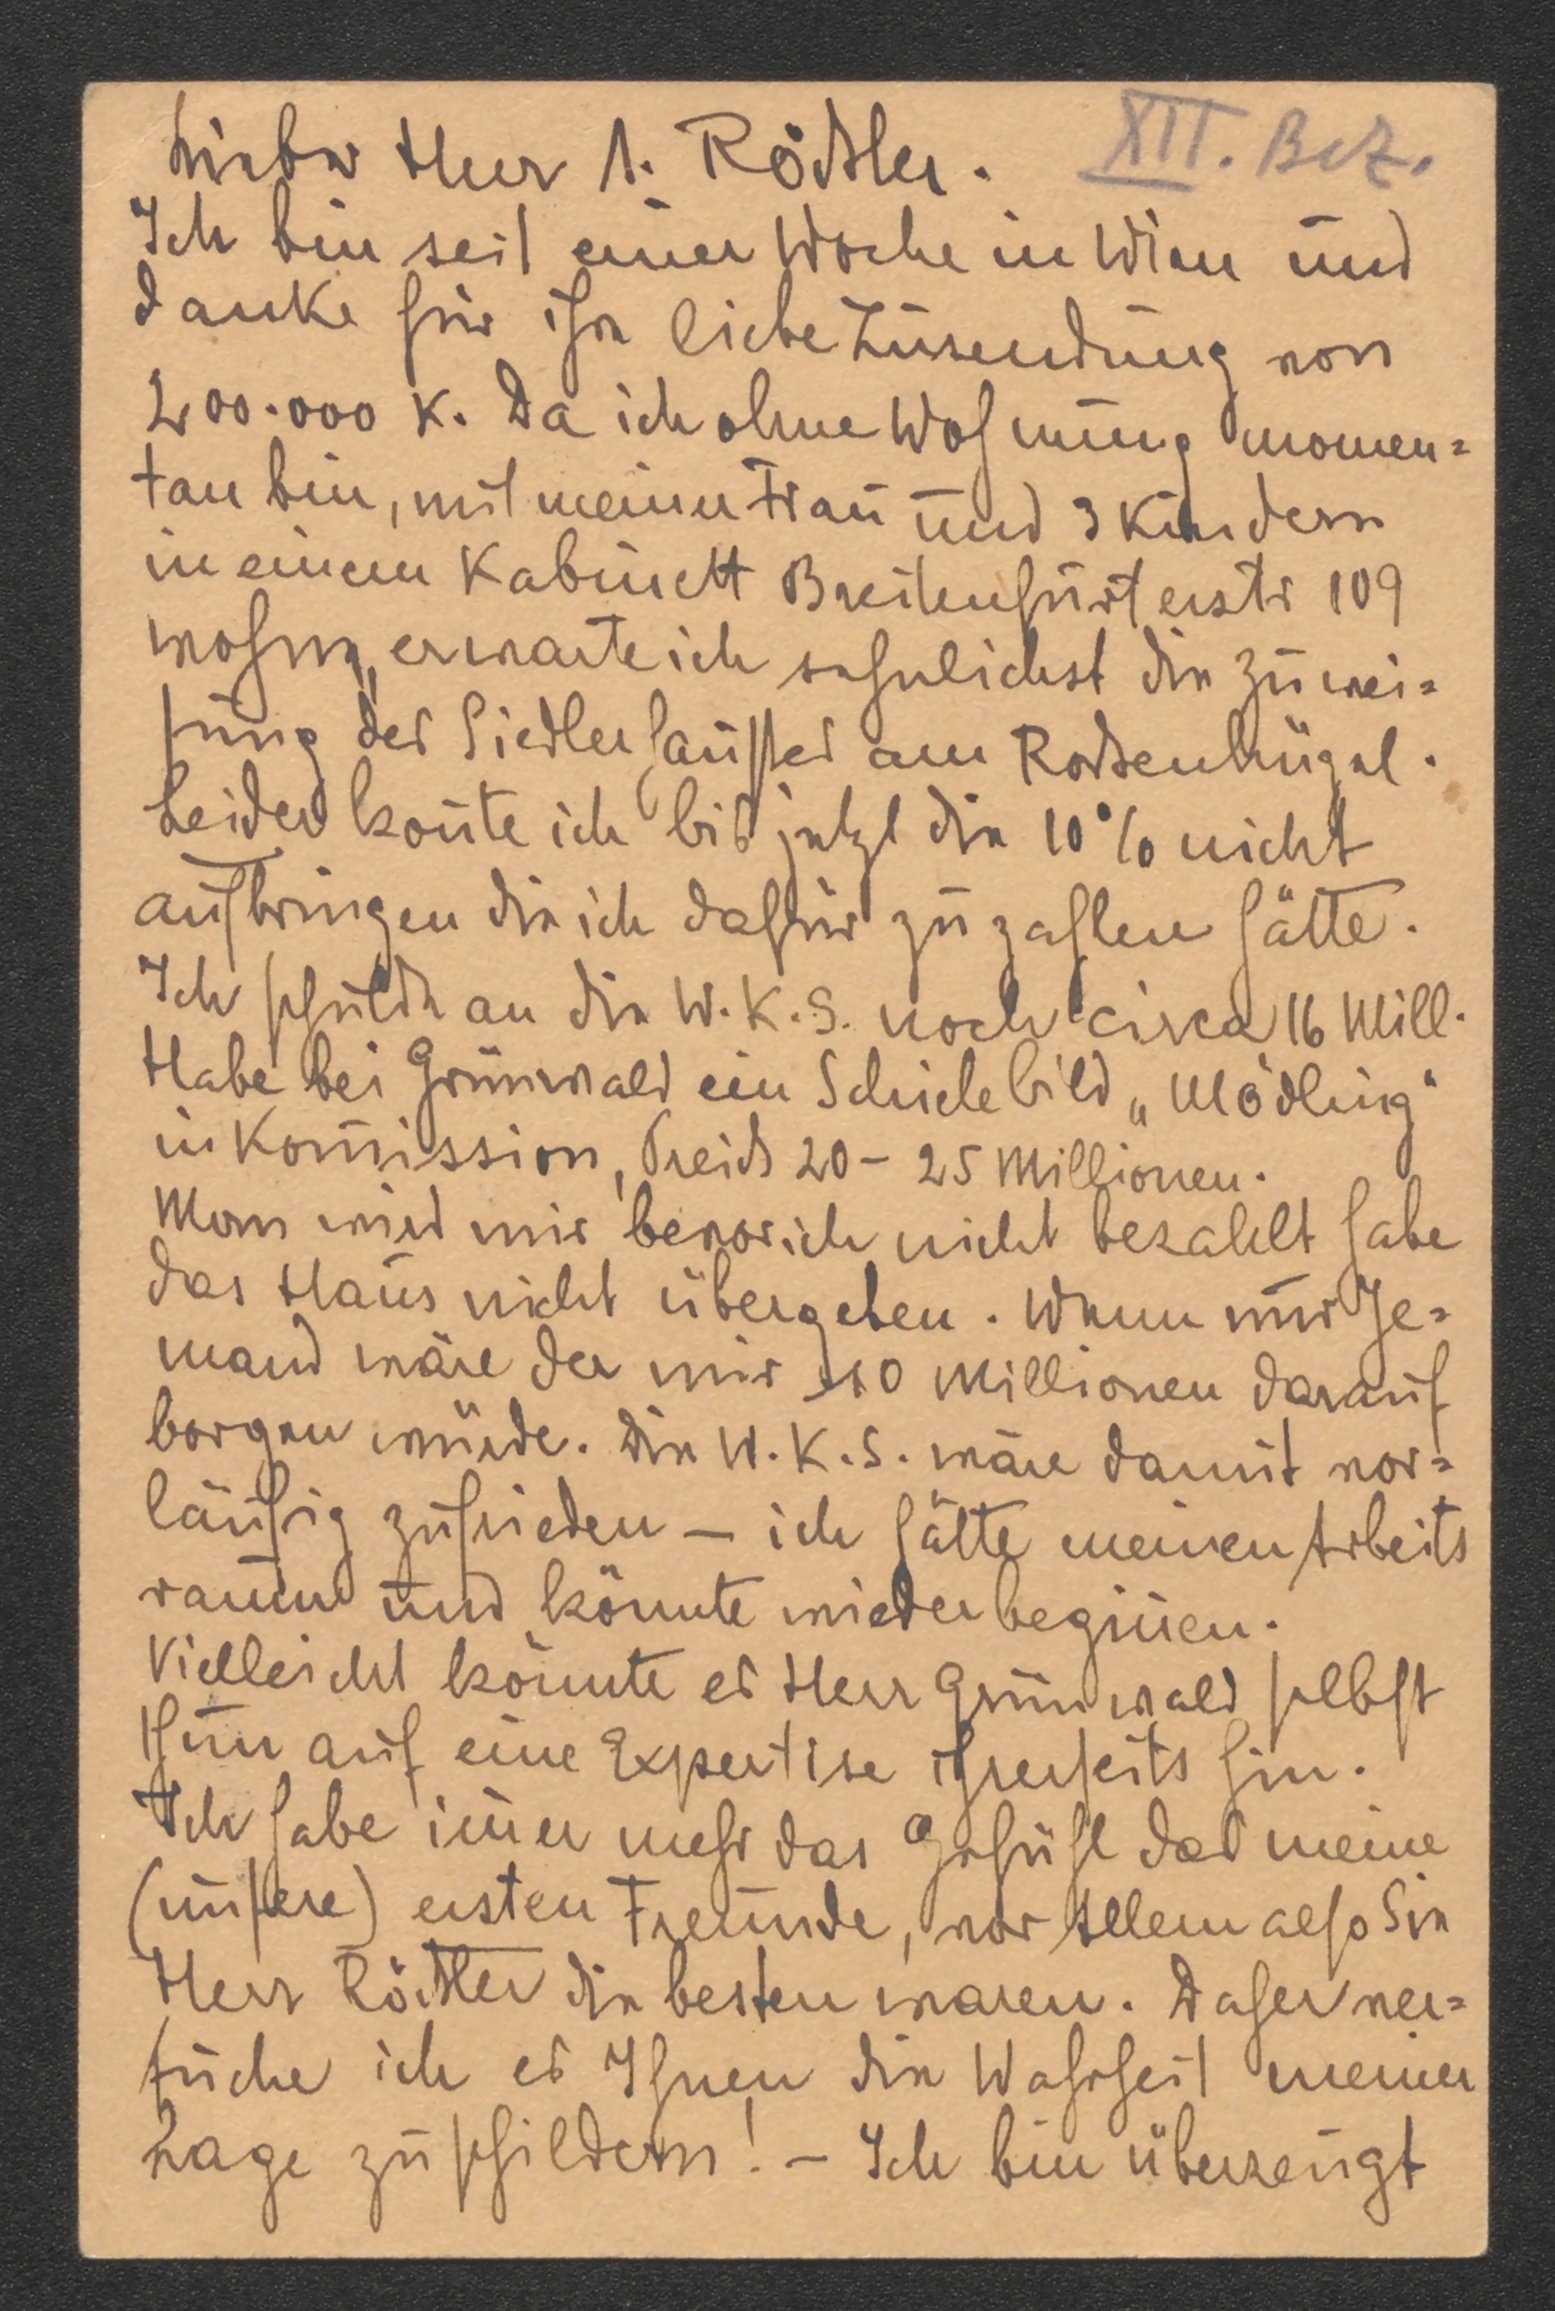 Lieber Herr A. Rößler. XII. Bez.
Ich bin seit einer Woche in Wien und
danke für ihre liebe Zusendung von
200.000 K. Da ich ohne Wohnung momen=
tan bin, mit meiner Frau und 3 Kindern
in einem Kabinett Breitenfurterstr 109
wohne, erwarte ich sehnlichst die Zuwei=
sung des Siedlerhauses am Rosenhügel.
Leider koñte ich bis jetzt die 10% nicht
aufbringen die ich dafür zu zahlen hätte.
Ich schulde an die W.K.S. noch circa 16 Mill.
Habe bei Grünwald ein Schiele bild „Mödling“
in Kom̄ission, Preis 20 - 25 Millionen.
Man wird mir bevor ich nicht bezahlt habe
das Haus nicht übergeben. Wenn nur Je=
mand wäre der mir 10 Millionen darauf
borgen würde. Die W.K.S. wäre damit vor=
läufig zufrieden — ich hätte meinen Arbeits
raum und könnte wieder begiñen.
Vielleicht könnte es Herr Grünwald selbst
thun auf eine Expertise ihrerseits hin.
Ich habe im̄er mehr das Gefühl das meine
(unsere) ersten Freunde, vor Allem also Sie
Herr Rößler die besten waren. Daher ver=
suche ich es Ihnen die Wahrheit meiner
Lage zu schildern! — Ich bin überzeugt